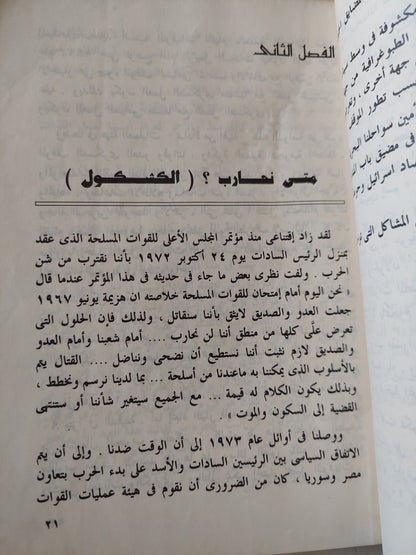 الفصل الثانى
متى نحارب ؟ ( الكشكول )
لقد زاد إقتناعى منذ مؤتمر المجلس الأعلى للقوات المسلحة الذى عقد
بمنزل الرئيس السادات يوم ٢٤ أكتوبر ١٩٧٢ بأننا نقترب من شن
الحرب . ولفت نظرى بعض ما جاء فى حديثه فى هذا المؤتمر عندما قال
« نحن اليوم أمام إمتحان للقوات المسلحة خلاصته ان هزيمة يونيو ١٩٦٧
جعلت العدو والصديق لايثق بأننا سنقاتل ، ولذلك فإن الحلول التى
تعرض علىّ كلها من منطق أننا لن نحارب .... أمام شعبنا وأمام العدو
والصديق لازم نثبت أننا نستطيع أن نضحى ونناضل .... القتال يتم
بالأسلوب الذى يمكننا به ماعندنا من أسلحة ... بما لدينا نرسم ونخطط ،
وبذلك يكون الكلام له قيمة ... مع الجميع سيتغير شأننا أو ستنتهى
القضية إلى السكون والموت » .
ووصلنا فى أوائل عام ١٩٧٣ إلى أن الوقت ضدنا . وإلى أن يتم
الاتفاق السياسى بين الرئيسين السادات والأسد على بدء الحرب بتعاون
مصر وسوريا ، كان من الضرورى أن نقوم فى هيئة عمليات القوات
٢١
مكشوفة فى وسط
الطبوغرافية من
جهة أخرى ،
حسب تطور
سواحلنا
فى مضيق باب
ضد اسرائيل
المشاكل التى